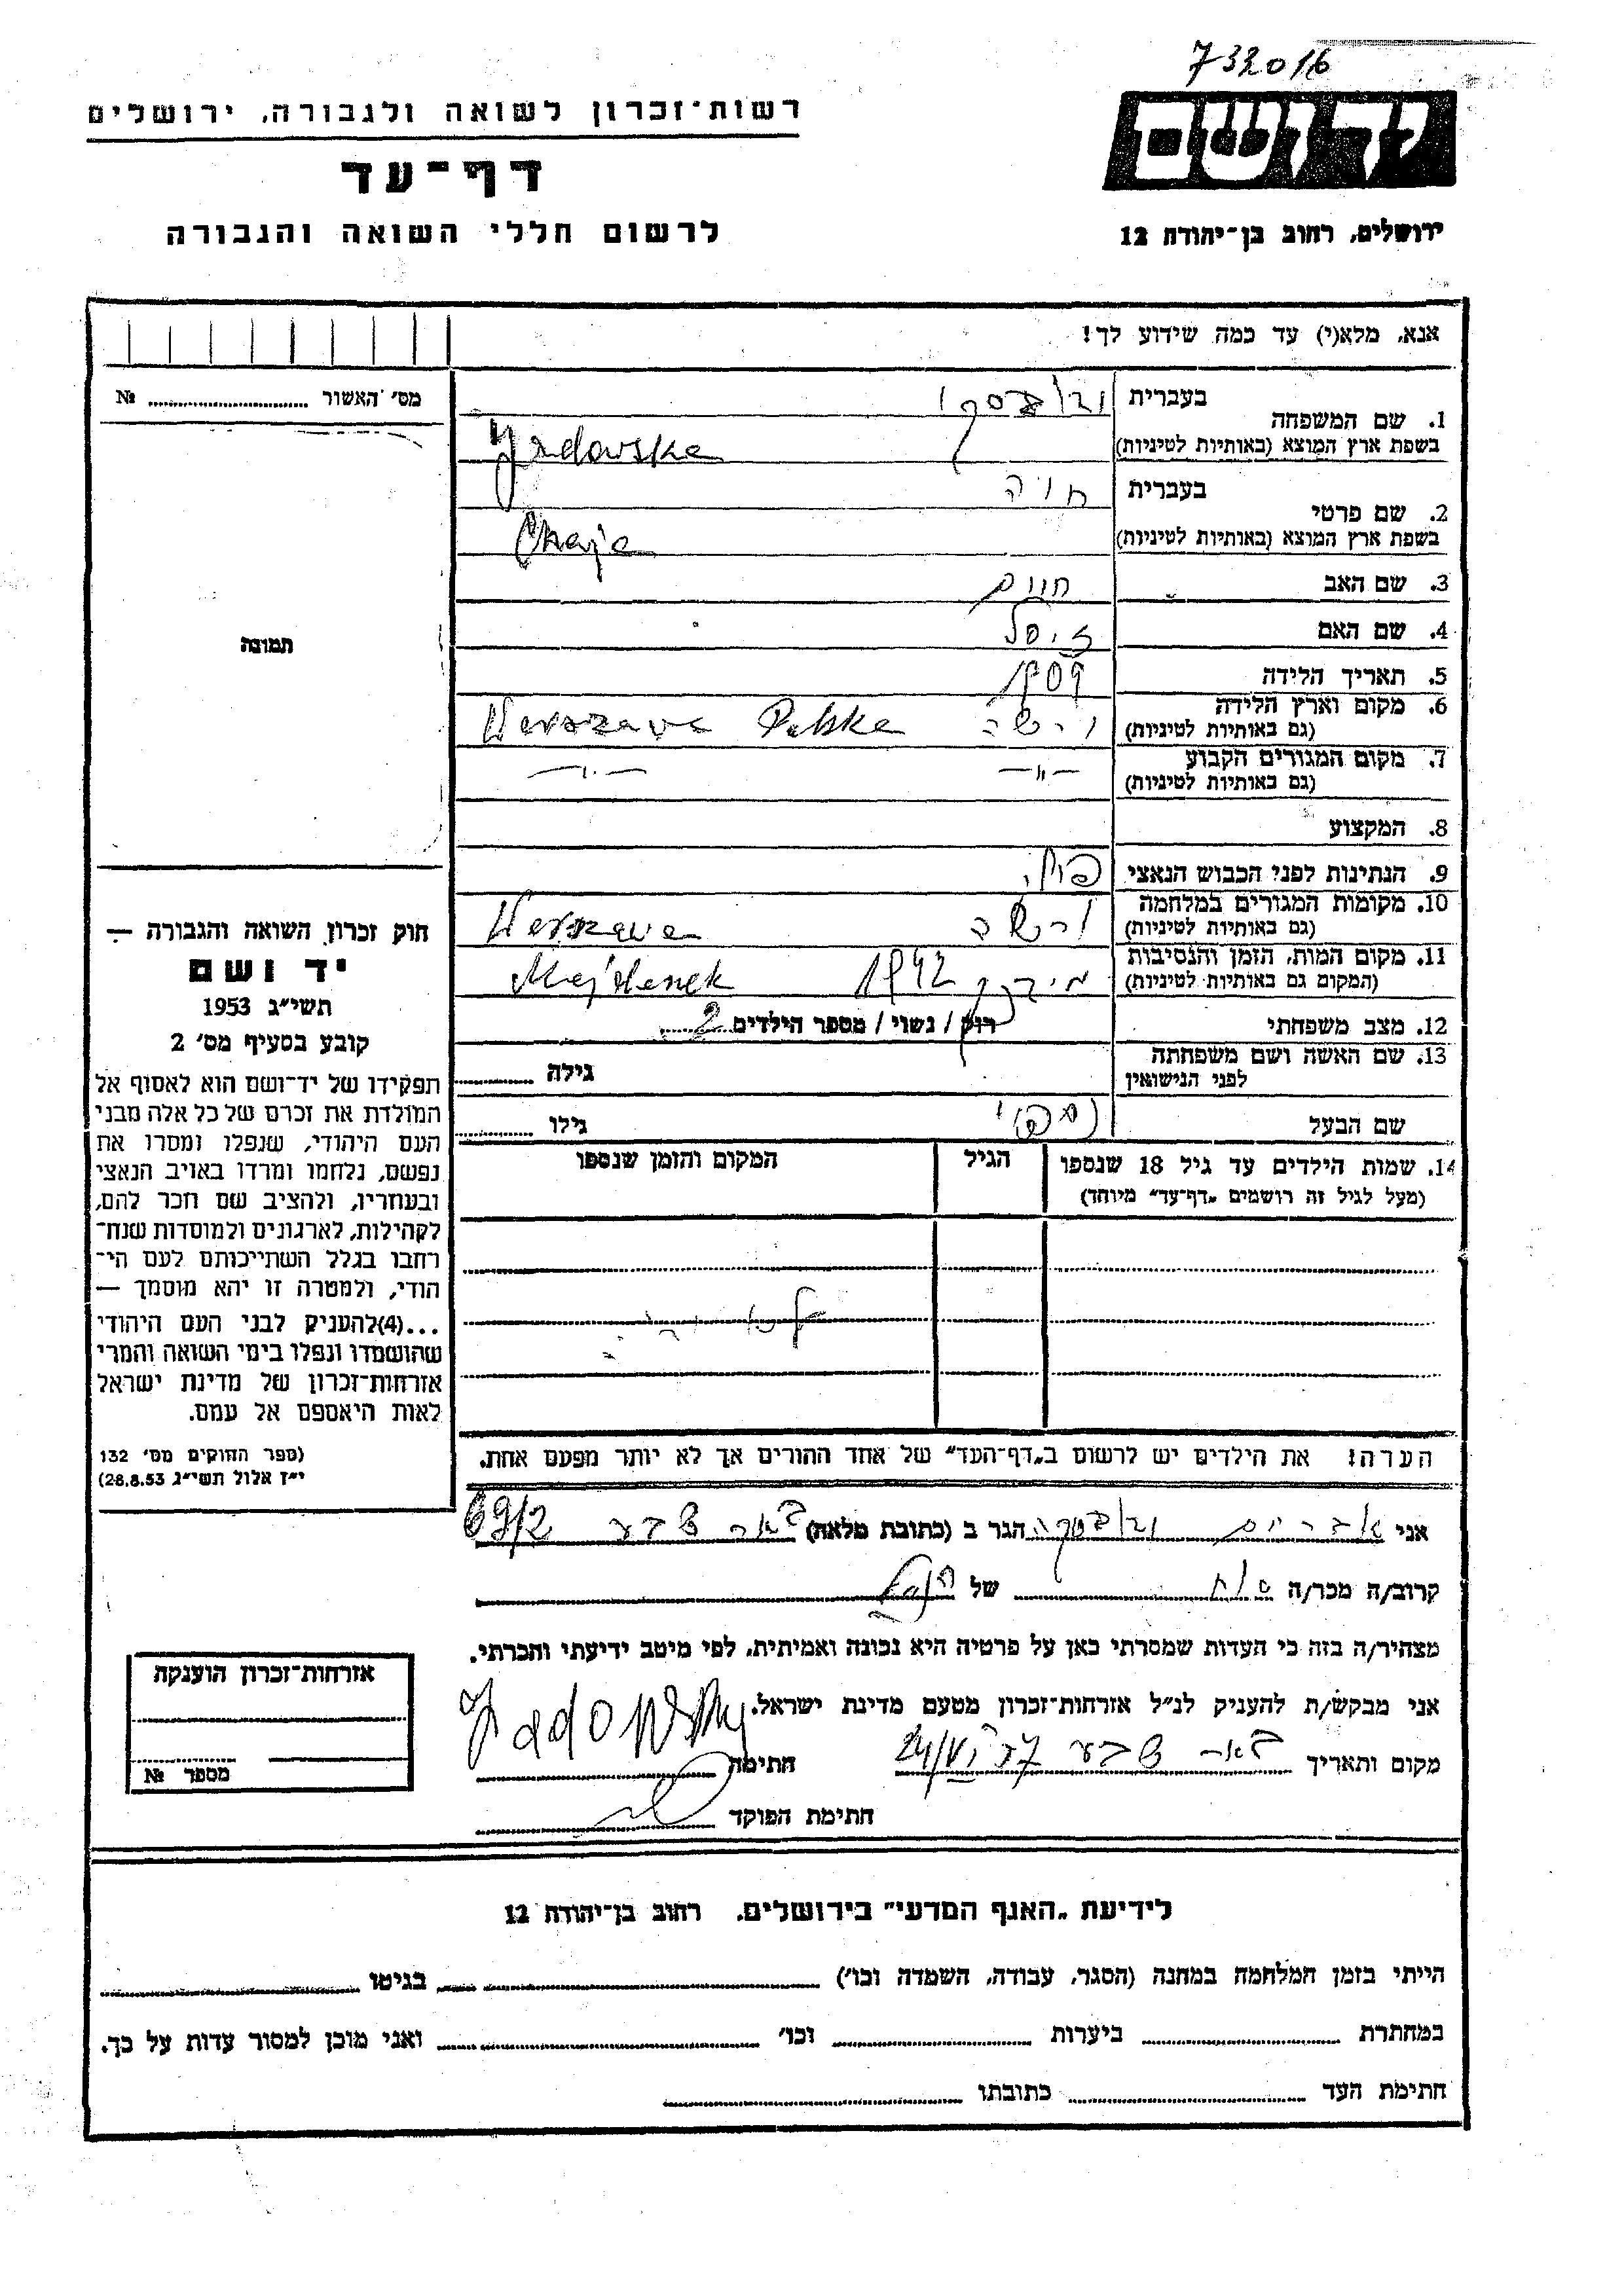 732016
רשות-זכרון לשואה ולגבורה, ירושלים
דף-עד
לרשום חללי השואה והגבורה
ירושלים, רחוב בן-יהודה 12
אנא, מלא(י) עד כמה שידוע לך!
מס׳ האשור № ............
תמונה
1. שם המשפחה
בעברית
בשפת ארץ המוצא (באותיות לטיניות)
2. שם פרטי
בעברית חיה
בשפת ארץ המוצא (באותיות לטיניות) Chaja
3. שם האב חיים
4. שם האם
5. תאריך הלידה 1909
6. מקום וארץ הלידה ורשה Warszawa Polska
(גם באותיות לטיניות)
7. מקום המגורים הקבוע —״— —״—
(גם באותיות לטיניות)
8. המקצוע
9. הנתינות לפני הכבוש הנאצי
10. מקומות המגורים במלחמה ורשה Warszawa
(גם באותיות לטיניות)
11. מקום המות, הזמן והנסיבות מידנק 1942 Majdanek
(המקום גם באותיות לטיניות)
12. מצב משפחתי רווק / נשוי / מספר הילדים 2
13. שם האשה ושם משפחתה
לפני הנישואין גילה ............
שם הבעל גילו ............
14. שמות הילדים עד גיל 18 שנספו
(מעל לגיל זה רושמים „דף-עד״ מיוחד)
הגיל
המקום והזמן שנספו
הערה: את הילדים יש לרשום ב„דף-העד״ של אחד ההורים אך לא יותר מפעם אחת.
חוק זכרון השואה והגבורה —
יד ושם
תשי״ג 1953
קובע בסעיף מס׳ 2
תפקידו של יד-ושם הוא לאסוף אל
המולדת את זכרם של כל אלה מבני
העם היהודי, שנפלו ומסרו את
נפשם, נלחמו ומרדו באויב הנאצי
ובעוזריו, ולהציב שם וזכר להם,
לקהילות, לארגונים ולמוסדות שנח־
רבו בגלל השתייכותם לעם הי־
הודי, ולמטרה זו יהא מוסמך —
...(4)להעניק לבני העם היהודי
שהושמדו ונפלו בימי השואה והמרי
אזרחות-זכרון של מדינת ישראל
לאות היאספם אל עמם.
(ספר החוקים מס׳ 132
י״ז אלול תשי״ג 28.8.53)
אני הגר ב (כתובת מלאה) באר שבע 69/2
קרוב/ה מכר/ה של
מצהיר/ה בזה כי העדות שמסרתי כאן על פרטיה היא נכונה ואמיתית, לפי מיטב ידיעתי והכרתי.
אני מבקש/ת להעניק לנ״ל אזרחות-זכרון מטעם מדינת ישראל.
מקום ותאריך באר שבע חתימה
חתימת הפוקד
אזרחות-זכרון הוענקה
מספר №
לידיעת „האגף המדעי״ בירושלים, רחוב בן-יהודה 12
הייתי בזמן המלחמה במחנה (הסגר, עבודה, השמדה וכו׳) ............ בגיטו ............
במחתרת ............ ביערות ............ וכו׳ ............ ואני מוכן למסור עדות על כך.
חתימת העד ............ כתובתו ............